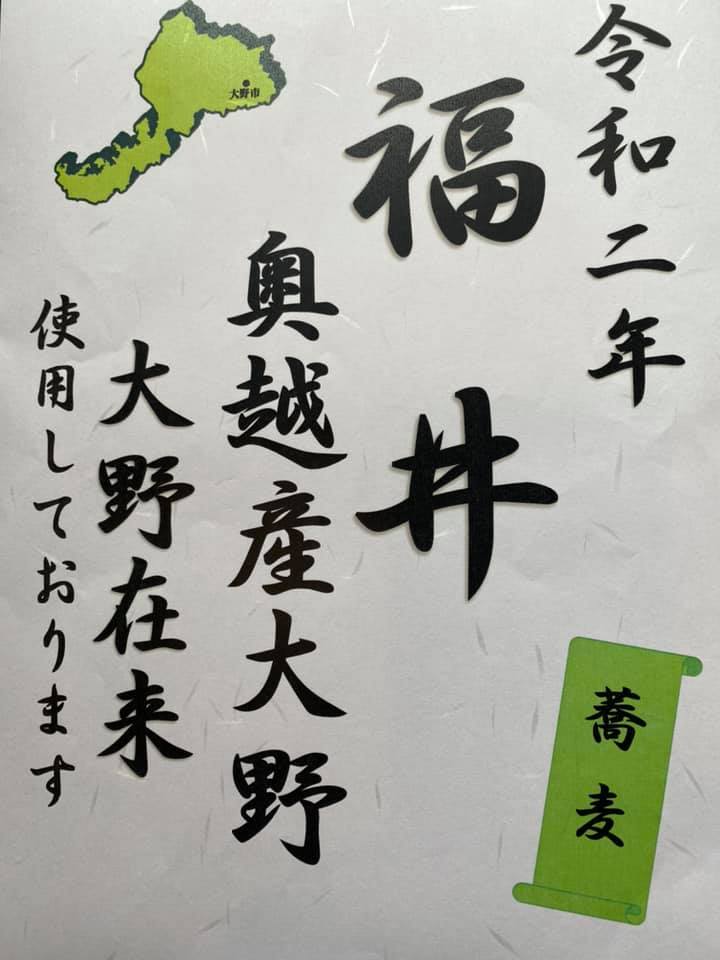 令和二年
福井
奥越産大野
大野在来
使用しております
大野市
蕎麦